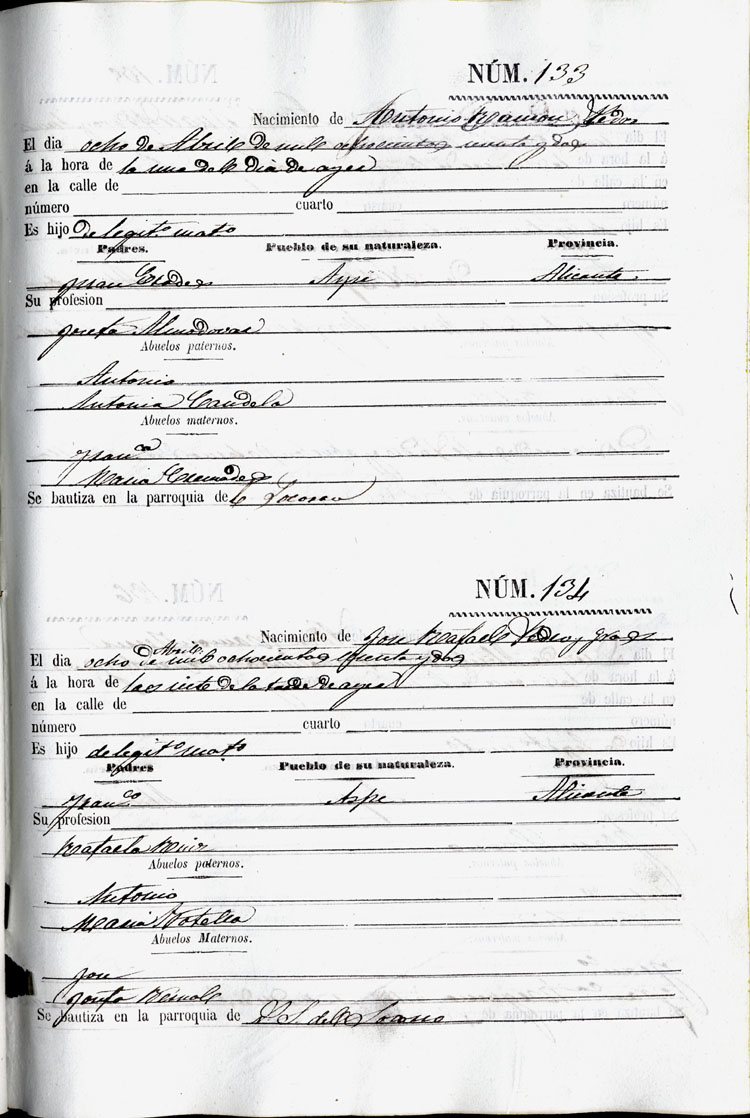 NÚM. 133
Nacimiento de Antonio Ramon Pedro
El dia ocho de Abril de mil ochocientos y dos
á la hora de la una del dia de ayer
en la calle de
número cuarto
Es hijo de legit.o mat.o
Padres. Pueblo de su naturaleza. Provincia.
Juan Aspe Alicante
Su profesion
Josefa Almodovar
Abuelos paternos.
Antonio
Antonia Candela
Abuelos maternos.
Fran.co
Maria Cremades
Se bautiza en la parroquia de Socorro
NÚM. 134
Nacimiento de Jose Rafael Pedro y
El dia ocho de Abril mil ochocientos y dos
á la hora de las siete de la tarde de ayer
en la calle de
número cuarto
Es hijo de legit.o mat.o
Padres Pueblo de su naturaleza. Provincia.
Fran.co Aspe Alicante
Su profesion
Rafaela
Abuelos paternos.
Antonio
Maria Botella
Abuelos Maternos.
Jose
Josefa
Se bautiza en la parroquia de N. S. del Socorro